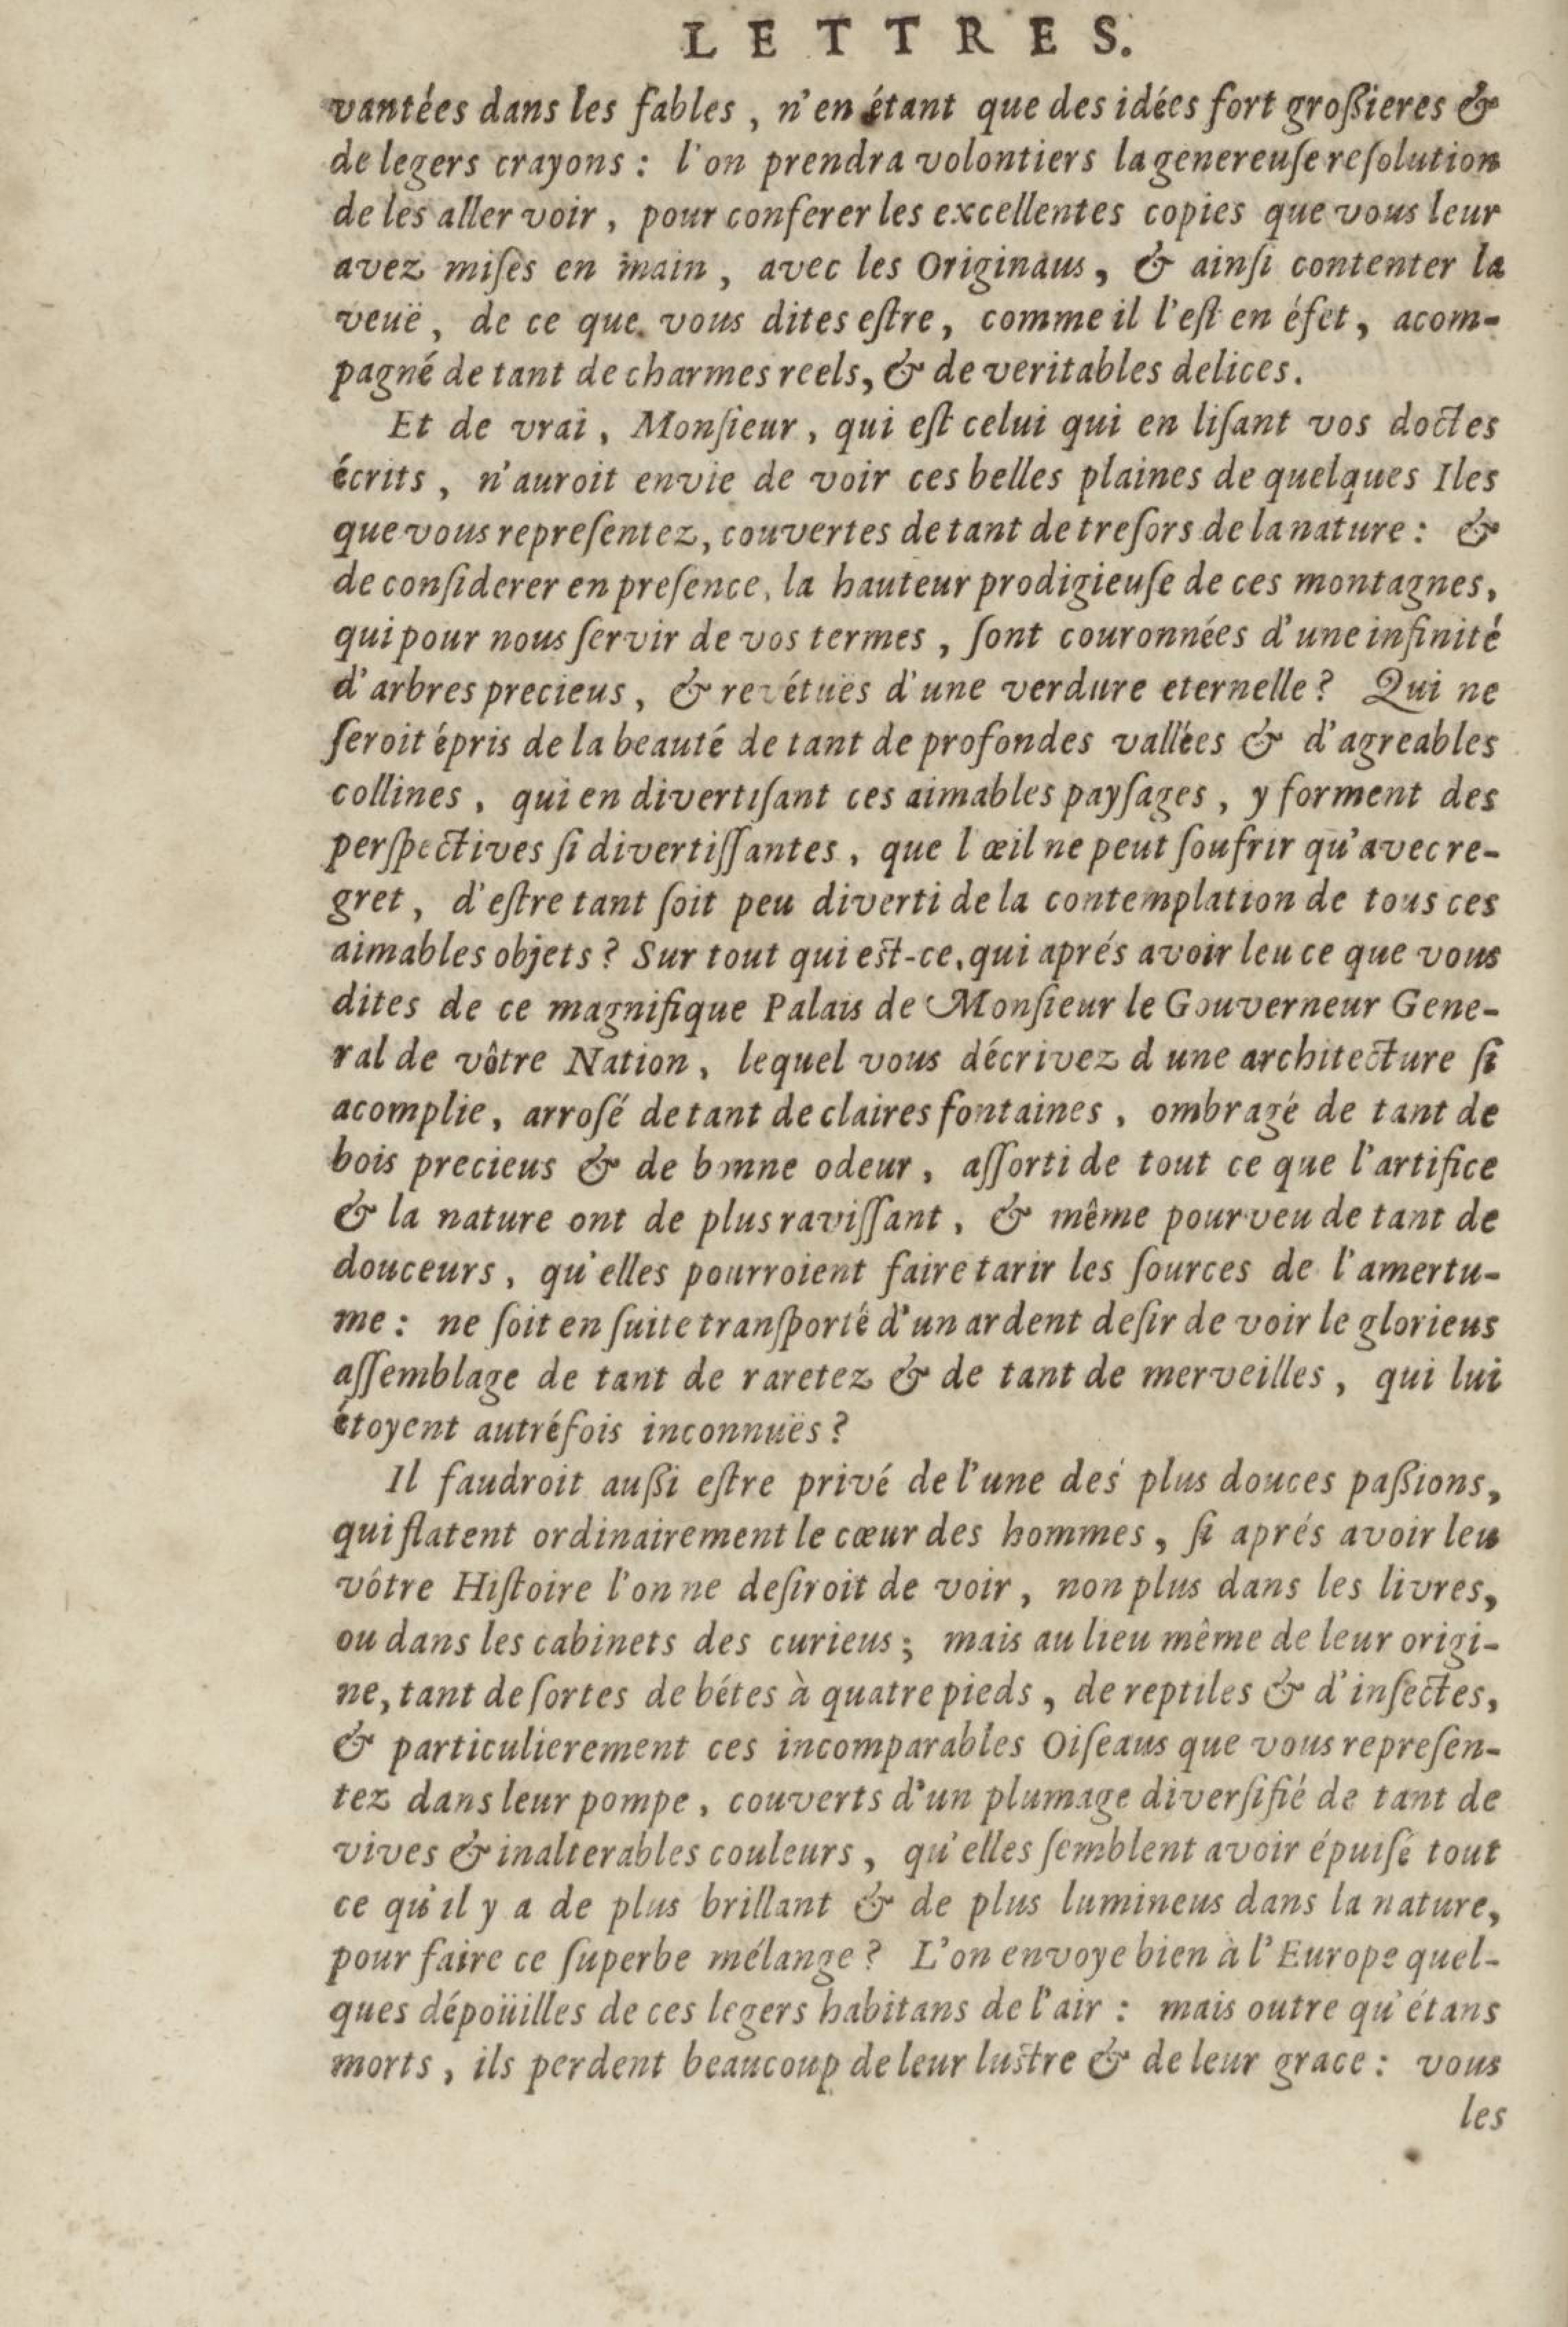 LETTRES.
vantées dans les fables, n'en étant que des idées fort großieres &
de legers crayons: l'on prendra volontiers la genereuſe reſolution
de les aller voir, pour conferer les excellentes copies que vous leur
avez miſes en main, avec les Originaus, & ainſi contenter la
veuë, de ce que vous dites eſtre, comme il l'eſt en éfet, acom-
pagné de tant de charmes reels, & de veritables delices.
Et de vrai, Monſieur, qui eſt celui qui en liſant vos doctes
écrits, n'auroit envie de voir ces belles plaines de quelques Iles
que vous repreſentez, couvertes de tant de treſors de la nature: &
de conſiderer en preſence, la hauteur prodigieuſe de ces montagnes,
qui pour nous ſervir de vos termes, ſont couronnées d'une infinité
d'arbres precieus, & revétuës d'une verdure eternelle? Qui ne
ſeroit épris de la beauté de tant de profondes vallées & d'agreables
collines, qui en divertiſant ces aimables payſages, y forment des
perſpectives ſi divertiſſantes, que l œil ne peut ſoufrir qu'avec re-
gret, d'eſtre tant ſoit peu diverti de la contemplation de tous ces
aimables objets? Sur tout qui eſt-ce, qui aprés avoir leu ce que vous
dites de ce magnifique Palais de Monſieur le Gouverneur Gene-
ral de vôtre Nation, lequel vous décrivez d une architecture ſi
acomplie, arroſé de tant de claires fontaines, ombragé de tant de
bois precieus & de bonne odeur, aſſorti de tout ce que l'artifice
& la nature ont de plus raviſſant, & même pourveu de tant de
douceurs, qu'elles pourroient faire tarir les ſources de l'amertu-
me: ne ſoit en ſuite tranſporté d'un ardent deſir de voir le glorieus
aſſemblage de tant de raretez & de tant de merveilles, qui lui
étoyent autréfois inconnuës?
Il faudroit außi eſtre privé de l'une des plus douces paßions,
qui flatent ordinairement le cœur des hommes, ſi aprés avoir leu
vôtre Hiſtoire l'on ne deſiroit de voir, non plus dans les livres,
ou dans les cabinets des curieus; mais au lieu même de leur origi-
ne, tant de ſortes de bétes à quatre pieds, de reptiles & d'inſectes,
& particulierement ces incomparables Oiſeaus que vous repreſen-
tez dans leur pompe, couverts d'un plumage diverſifié de tant de
vives & inalterables couleurs, qu'elles ſemblent avoir épuiſé tout
ce qu'il y a de plus brillant & de plus lumineus dans la nature,
pour faire ce ſuperbe mélange? L'on envoye bien à l'Europe quel-
ques dépoüilles de ces legers habitans de l'air: mais outre qu'étans
morts, ils perdent beaucoup de leur luſtre & de leur grace: vous
les